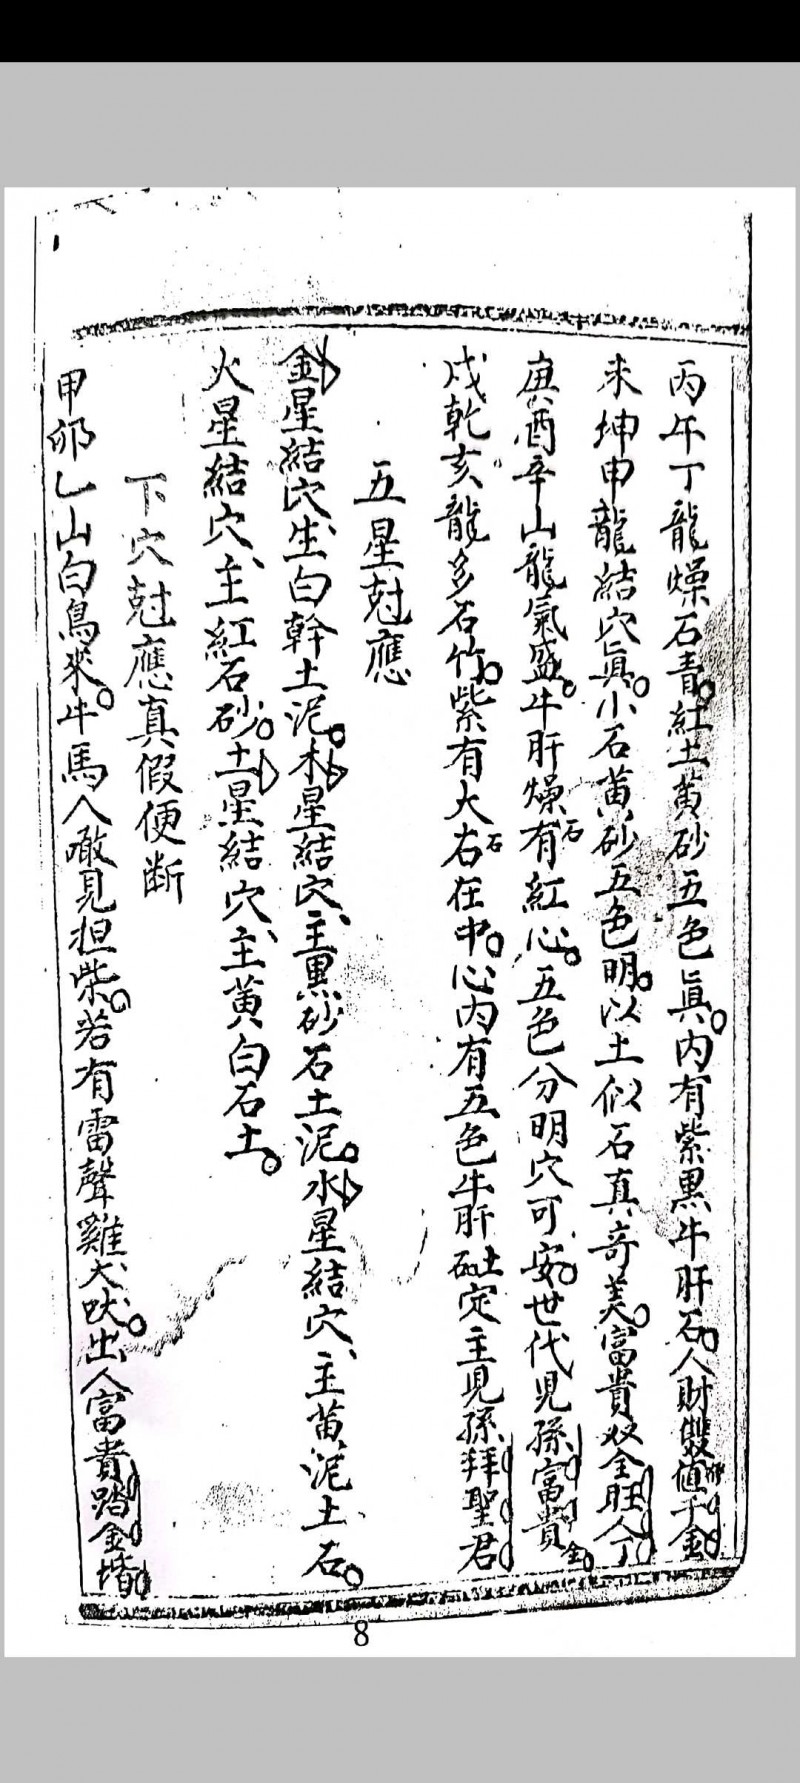 丙午丁龍燥石青。紅土黃砂五色真。內有紫黑牛肝石。人財雙值千金
未坤申龍結穴真。小石黃砂五色明。以土似石真奇美。富貴双全旺人丁
庚酉辛山龍氣盛。牛肝燥石有紅心。五色分明穴可安。世代児孫富貴全。
戍乾亥龍多石竹。紫有大右石在中。心內有五色牛肝土定主見孫拜聖君
五星尅應
金星結穴、生白幹土泥。木星結穴、主黑砂石土泥。水星結穴、主黃泥土石。
火星結穴、主紅石砂。土星結穴、主黃白石土。
下穴尅應真假便断
甲卯乙山白鳥來。牛馬人噉見担柴。若有雷聲雞犬吠。出人富貴踏金堦
8